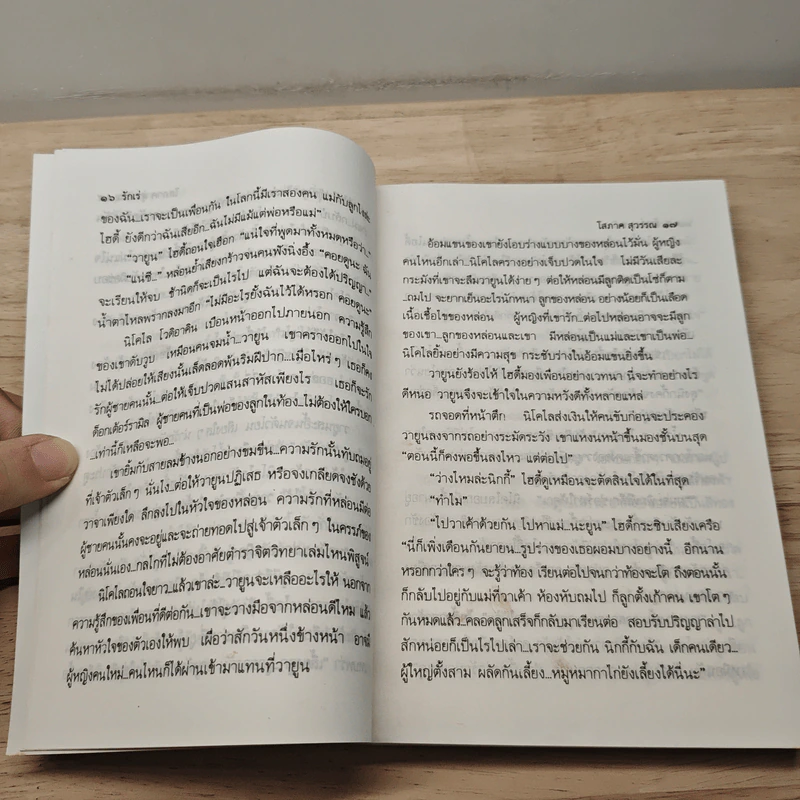 ๑๖ รักเร่
ของฉัน...เราจะเป็นเพื่อนกัน ในโลกนี้มีเราสองคน แม่กับลูกไงล่ะ
ไฮตี้ ยังดีกว่าฉันเสียอีก..ฉันไม่มีแม้แต่พ่อหรือแม่”
“วายูน” ไฮตี้ถอนใจเฮือก “แน่ใจที่พูดมาทั้งหมดหรือว่า..”
“แน่ซี...” หล่อนย้ำเสียงกร้าวจนคนฟังนิ่งอึ้ง “คอยดูนะ ฉัน
จะเรียนให้จบ ช้านิดก็จะเป็นไรไป แต่ฉันจะต้องได้ปริญญา..”
น้ำตาไหลพรากลงมาอีก “ไม่มีอะไรยั้งฉันไว้ได้หรอก คอยดูนะ”
นิโคไล โวติอาคิน เบือนหน้าออกไปภายนอก ความรู้สึก
ของเขาดับวูบ เหมือนคนจมน้ำ...วายูน เขาครางออกไปในใจ
ไม่ได้ปล่อยให้เสียงนั้นเล็ดลอดพ้นริมฝีปาก...เมื่อไหร่ๆ เธอก็คง
รักผู้ชายคนนั้น...ต่อให้เจ็บปวดแสนสาหัสเพียงไร เธอก็จะรัก
ด็อกเตอร์รามิล ผู้ชายคนที่เป็นพ่อของลูกในท้อง...ไม่ต้องให้ใครบอก
...เท่านี้ก็เหลือจะพอ...
เขายิ้มกับสายลมข้างนอกอย่างขมขื่น...ความรักนั้นทับถมอยู่
ที่เจ้าตัวเล็กๆ นั่นไง...ต่อให้วายูนปฏิเสธ หรือจงเกลียดจงชังด้วย
วาจาเพียงใด ลึกลงไปในหัวใจของหล่อน ความรักที่หล่อนมีต่อ
ผู้ชายคนนั้นคงจะอยู่และจะถ่ายทอดไปสู่เจ้าตัวเล็กๆ ในครรภ์ของ
หล่อนนั่นเอง..กลไกที่ไม่ต้องอาศัยตำราจิตวิทยาเล่มไหนพิสูจน์
นิโคไลถอนใจยาว...แล้วเขาล่ะ...วายูนจะเหลืออะไรให้ นอกจาก
ความรู้สึกของเพื่อนที่ดีต่อกัน...เขาจะวางมือจากหล่อนดีไหม แล้ว
ค้นหาหัวใจของตัวเองให้พบ เผื่อว่าสักวันหนึ่งข้างหน้า อาจมี
ผู้หญิงคนใหม่...คนไหนก็ได้ผ่านเข้ามาแทนที่วายูน
โสภาค สุวรรณ ๑๗
อ้อมแขนของเขายังโอบร่างแบบบางของหล่อนไว้มั่น ผู้หญิง
คนไหนอีกเล่า..นิโคไลครางอย่างเจ็บปวดในใจ ไม่มีวันเสียละ
กระมังที่เขาจะลืมวายูนได้ง่ายๆ ต่อให้หล่อนมีลูกติดเป็นโซ่ก็ตาม
...ถมไป จะยากเย็นอะไรนักหนา ลูกของหล่อน อย่างน้อยก็เป็นเลือด
เนื้อเชื้อไขของหล่อน ผู้หญิงที่เขารัก...ต่อไปหล่อนอาจจะมีลูก
ของเขา...ลูกของหล่อนและเขา มีหล่อนเป็นแม่และเขาเป็นพ่อ...
นิโคไลยิ้มอย่างมีความสุข กระชับร่างในอ้อมแขนยิ่งขึ้น
วายูนยังร้องไห้ ไฮตี้มองเพื่อนอย่างเวทนา นี่จะทำอย่างไร
ดีหนอ วายูนจึงจะเข้าใจในความหวังดีทั้งหลายแหล่
รถจอดที่หน้าตึก นิโคไลส่งเงินให้คนขับก่อนจะประคอง
วายูนลงจากรถอย่างระมัดระวัง เขาแหงนหน้าขึ้นมองชั้นบนสุด
“ตอนนี้ก็คงพอขึ้นลงไหว แต่ต่อไป”
“ว่างไหมล่ะนิกกี้” ไฮตี้ดูเหมือนจะตัดสินใจได้ในที่สุด
“ทำไม”
“ไปวาเค้าด้วยกัน ไปหาแม่...นะยูน” ไฮตี้กระซิบเสียงเครือ
“นี่ก็เพิ่งเดือนกันยายน...รูปร่างของเธอผอมบางอย่างนี้ อีกนาน
หรอกกว่าใครๆ จะรู้ว่าท้อง เรียนต่อไปจนกว่าท้องจะโต ถึงตอนนั้น
ก็กลับไปอยู่กับแม่ที่วาเค้า ห้องหับถมไป ก็ลูกตั้งเก้าคน เขาโตๆ
กันหมดแล้ว...คลอดลูกเสร็จก็กลับมาเรียนต่อ สอบรับปริญญาล่าไป
สักหน่อยก็เป็นไรไปเล่า...เราจะช่วยกัน นิกกี้กับฉัน เด็กคนเดียว...
ผู้ใหญ่ตั้งสาม ผลัดกันเลี้ยง...หมูหมากาไก่ยังเลี้ยงได้นี่นะ”